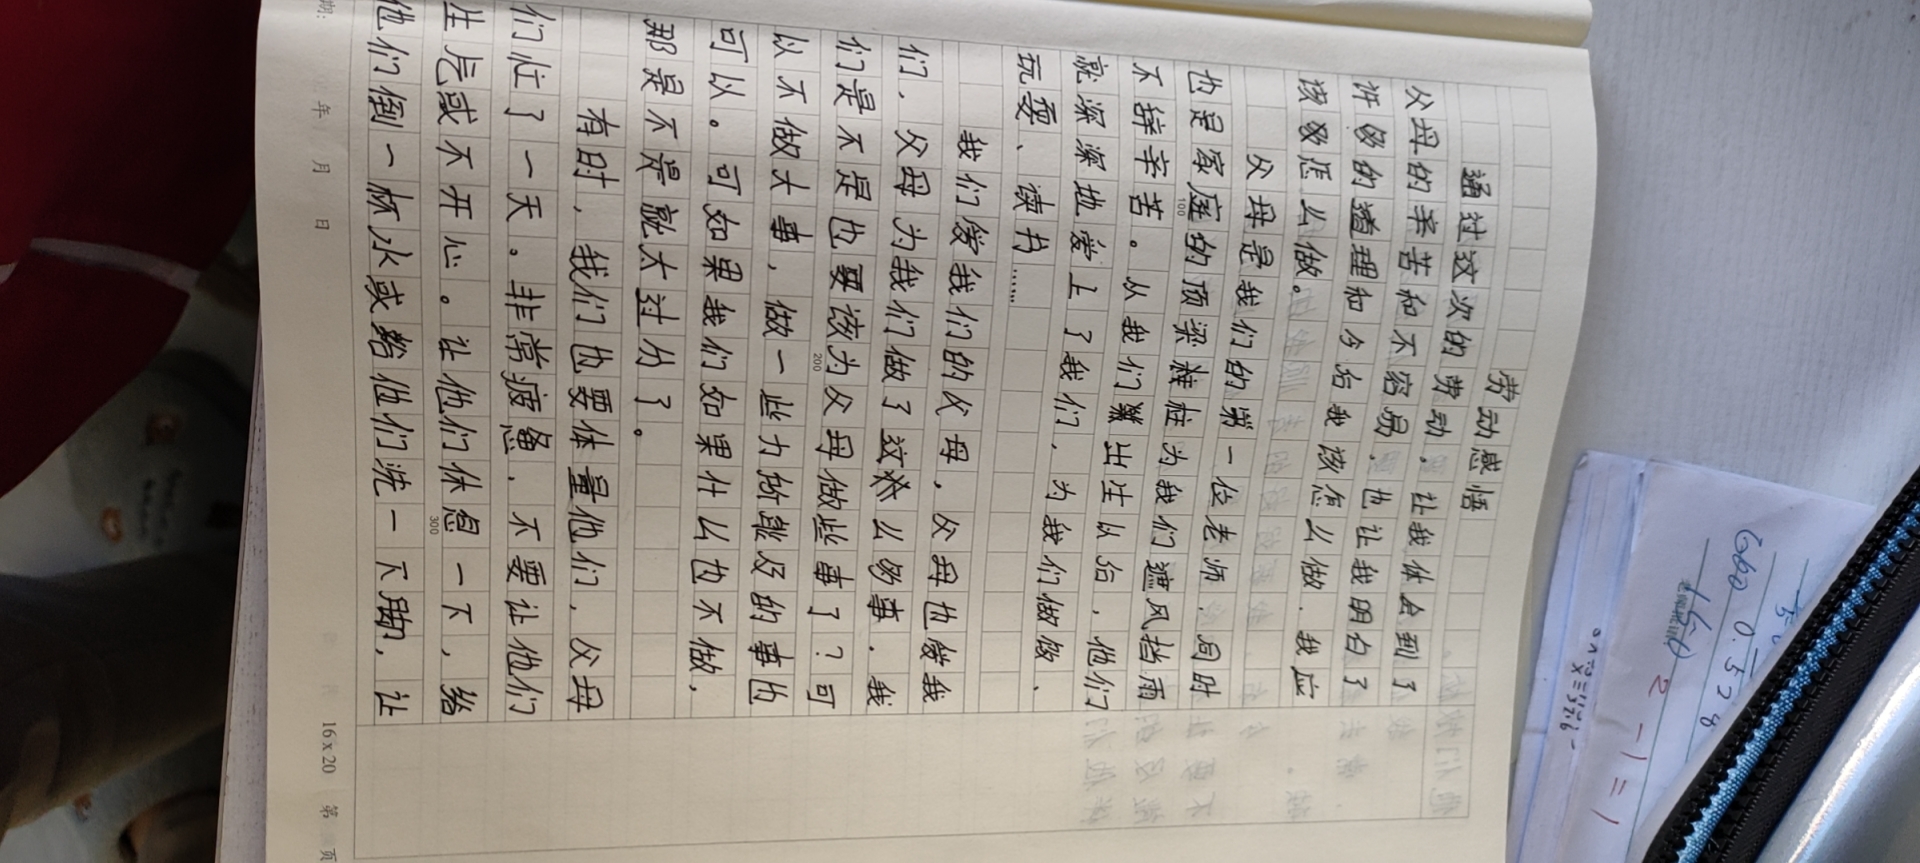 劳动感悟
通过这次的劳动，让我体会到了
父母的辛苦和不容易，也让我明白了
许多的道理和今后我该怎么做，我应
该改怎么做。
父母是我们的第一位老师，同时
也是家庭的顶梁柱为我们遮风挡雨
不辞辛苦。从我们出生以后，他们
就深深地爱上了我们，为我们做饭、
玩耍、读书……
我们爱我们的父母，父母也爱我
们，父母为我们做了这么多事，我
们是不是也要该为父母做些事了？可
以不做大事，做一些力所能及的事也
可以。可如果我们如果什么也不做，
那是不是就太过分了。
有时，我们也要体量他们，父母
们忙了一天。非常疲惫，不要让他们
生气或不开心。让他们休息一下，给
他们倒一杯水或给他们洗一下脚，让
100
200
300
期：
年 月 日
16x20 第 页
0.528
2-1=1